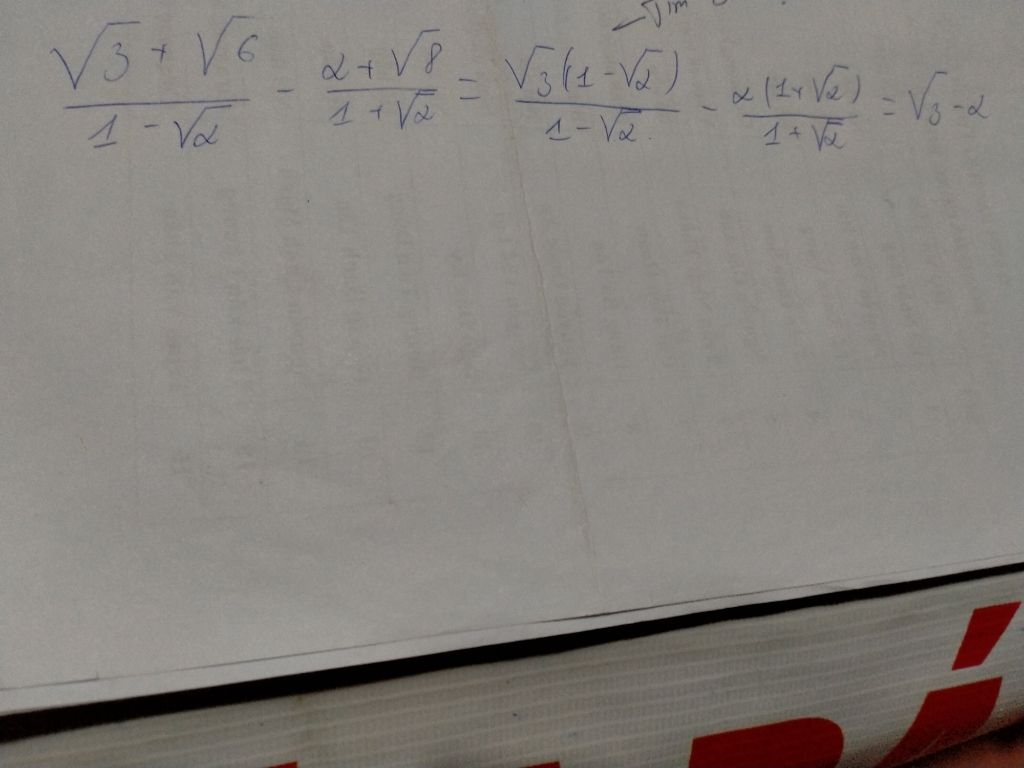 √3 + √6 / 1 - √2 - 2 + √8 / 1 + √2 = √3(1 - √2) / 1 - √2. - 2(1+√2) / 1 + √2 = √3 - 2